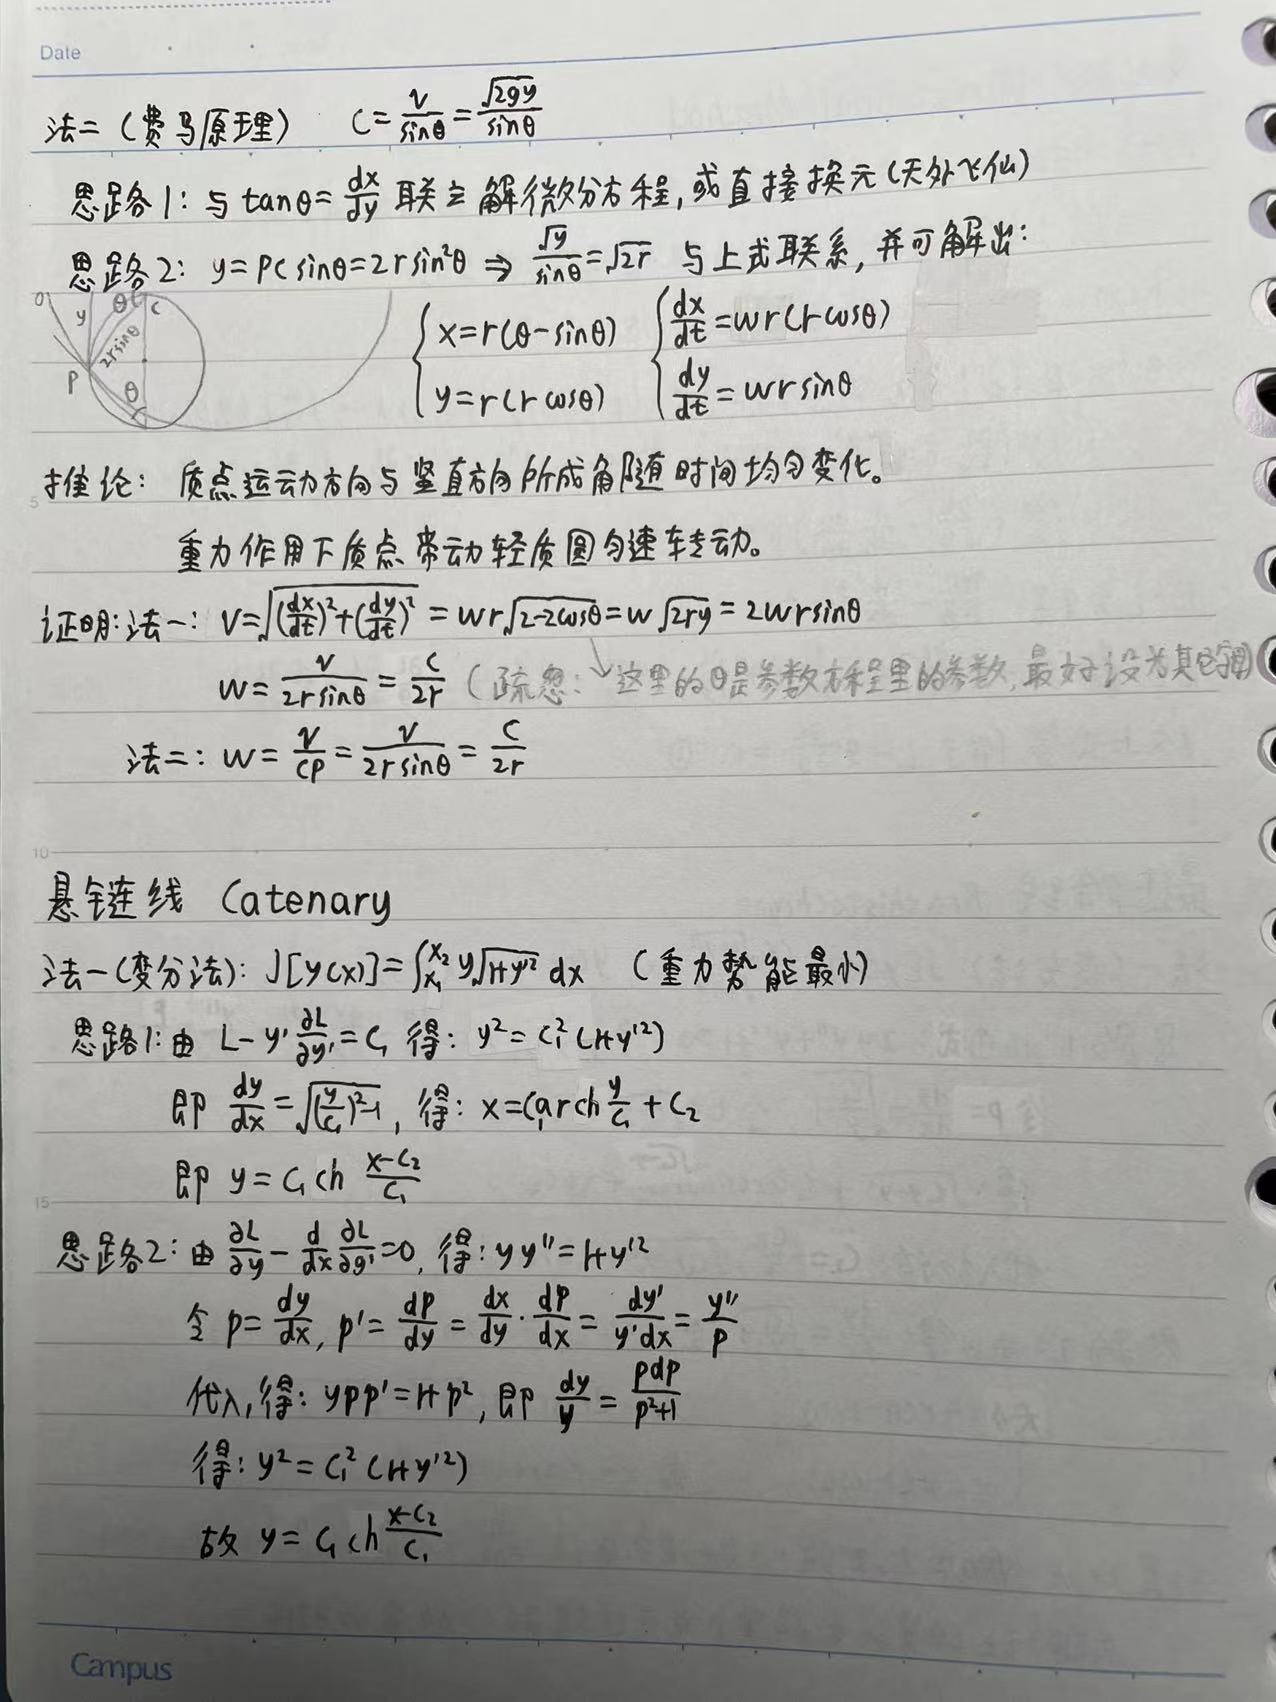 Date
法二（费马原理） C=v/sinθ=√(2gy)/sinθ
思路1：与tanθ=dx/dy联立解微分方程，或直接换元（天外飞仙）
思路2：y=PC sinθ=2r sin²θ ⇒ √y/sinθ=√2r 与上式联系，并可解出：
O y θ C 2r sinθ P θ
{x=r(θ-sinθ) {dx/dt=wr(1-cosθ)
{y=r(1-cosθ) {dy/dt=wr sinθ
5
推论：质点运动方向与竖直方向所成角随时间均匀变化。
重力作用下质点带动轻质圆匀速转动。
证明：法一：V=√((dx/dt)²+(dy/dt)²)=wr√(2-2cosθ)=w√(2ry)=2wr sinθ
w=v/(2r sinθ)=C/2r（疏忽：↘这里的θ是参数方程里的参数，最好设为其它字母）
法二：w=v/CP=v/(2r sinθ)=C/2r
10
悬链线 Catenary
法一（变分法）：J[y(x)]=∫_{x₁}^{x₂} y√(1+y'²) dx （重力势能最小）
思路1：由 L-y' ∂L/∂y'=C₁ 得：y²=C₁²(1+y'²)
即 dy/dx=√((y/C₁)²-1)，得：x=C₁arch y/C₁+C₂
即 y=C₁ch (x-C₂)/C₁
15
思路2：由 ∂L/∂y - d/dx ∂L/∂y'=0，得：yy''=1+y'²
令 p=dy/dx, p'=dp/dy=dx/dy·dp/dx=dy'/(y'dx)=y''/p
代入，得：ypp'=1+p²，即 dy/y=pdp/(p²+1)
得：y²=C₁²(1+y'²)
故 y=C₁ch (x-C₂)/C₁
Campus